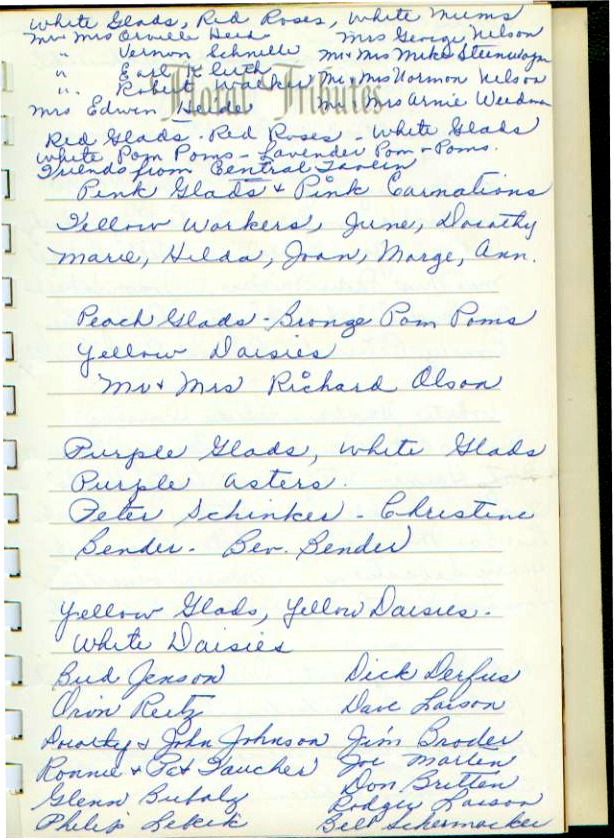 White Glads, Red Roses, White Mums
Mr Mrs Orville Heid Mrs George Nelson
" Vernon Schnelle Mr + Mrs Mike Steinwagn
" Earl Kluth
". Robert Walker Mr + Mrs Normon Nelson
Flower Tributes
Mrs Edwin Heide Mr + Mrs Arnie Weedman
Red Glads - Red Roses - White Glads
White Pom Poms - Lavender Pom - Poms.
Friends from Central Tavern
Pink Glads + Pink Carnations
Fellow Workers, June, Dorothy
Marie, Hilda, Joan, Marge, Ann.
Peach Glads - Bronze Pom Poms
Yellow Daisies
Mr + Mrs Richard Olson
Purple Glads, White Glads
Purple Asters.
Peter Schinker - Christine
Bender - Bev. Bender
Yellow Glads, Yellow Daisies -
White Daisies
Bud Jenson Dick Derfus
Orin Reitz Dave Larson
Dorothy + John Johnson Jim Broder
Ronnie + Pat Faucher Joe Marten
Don Britten
Glenn Bubalz Rodger Larson
Philip Lekik Bill Schermacker